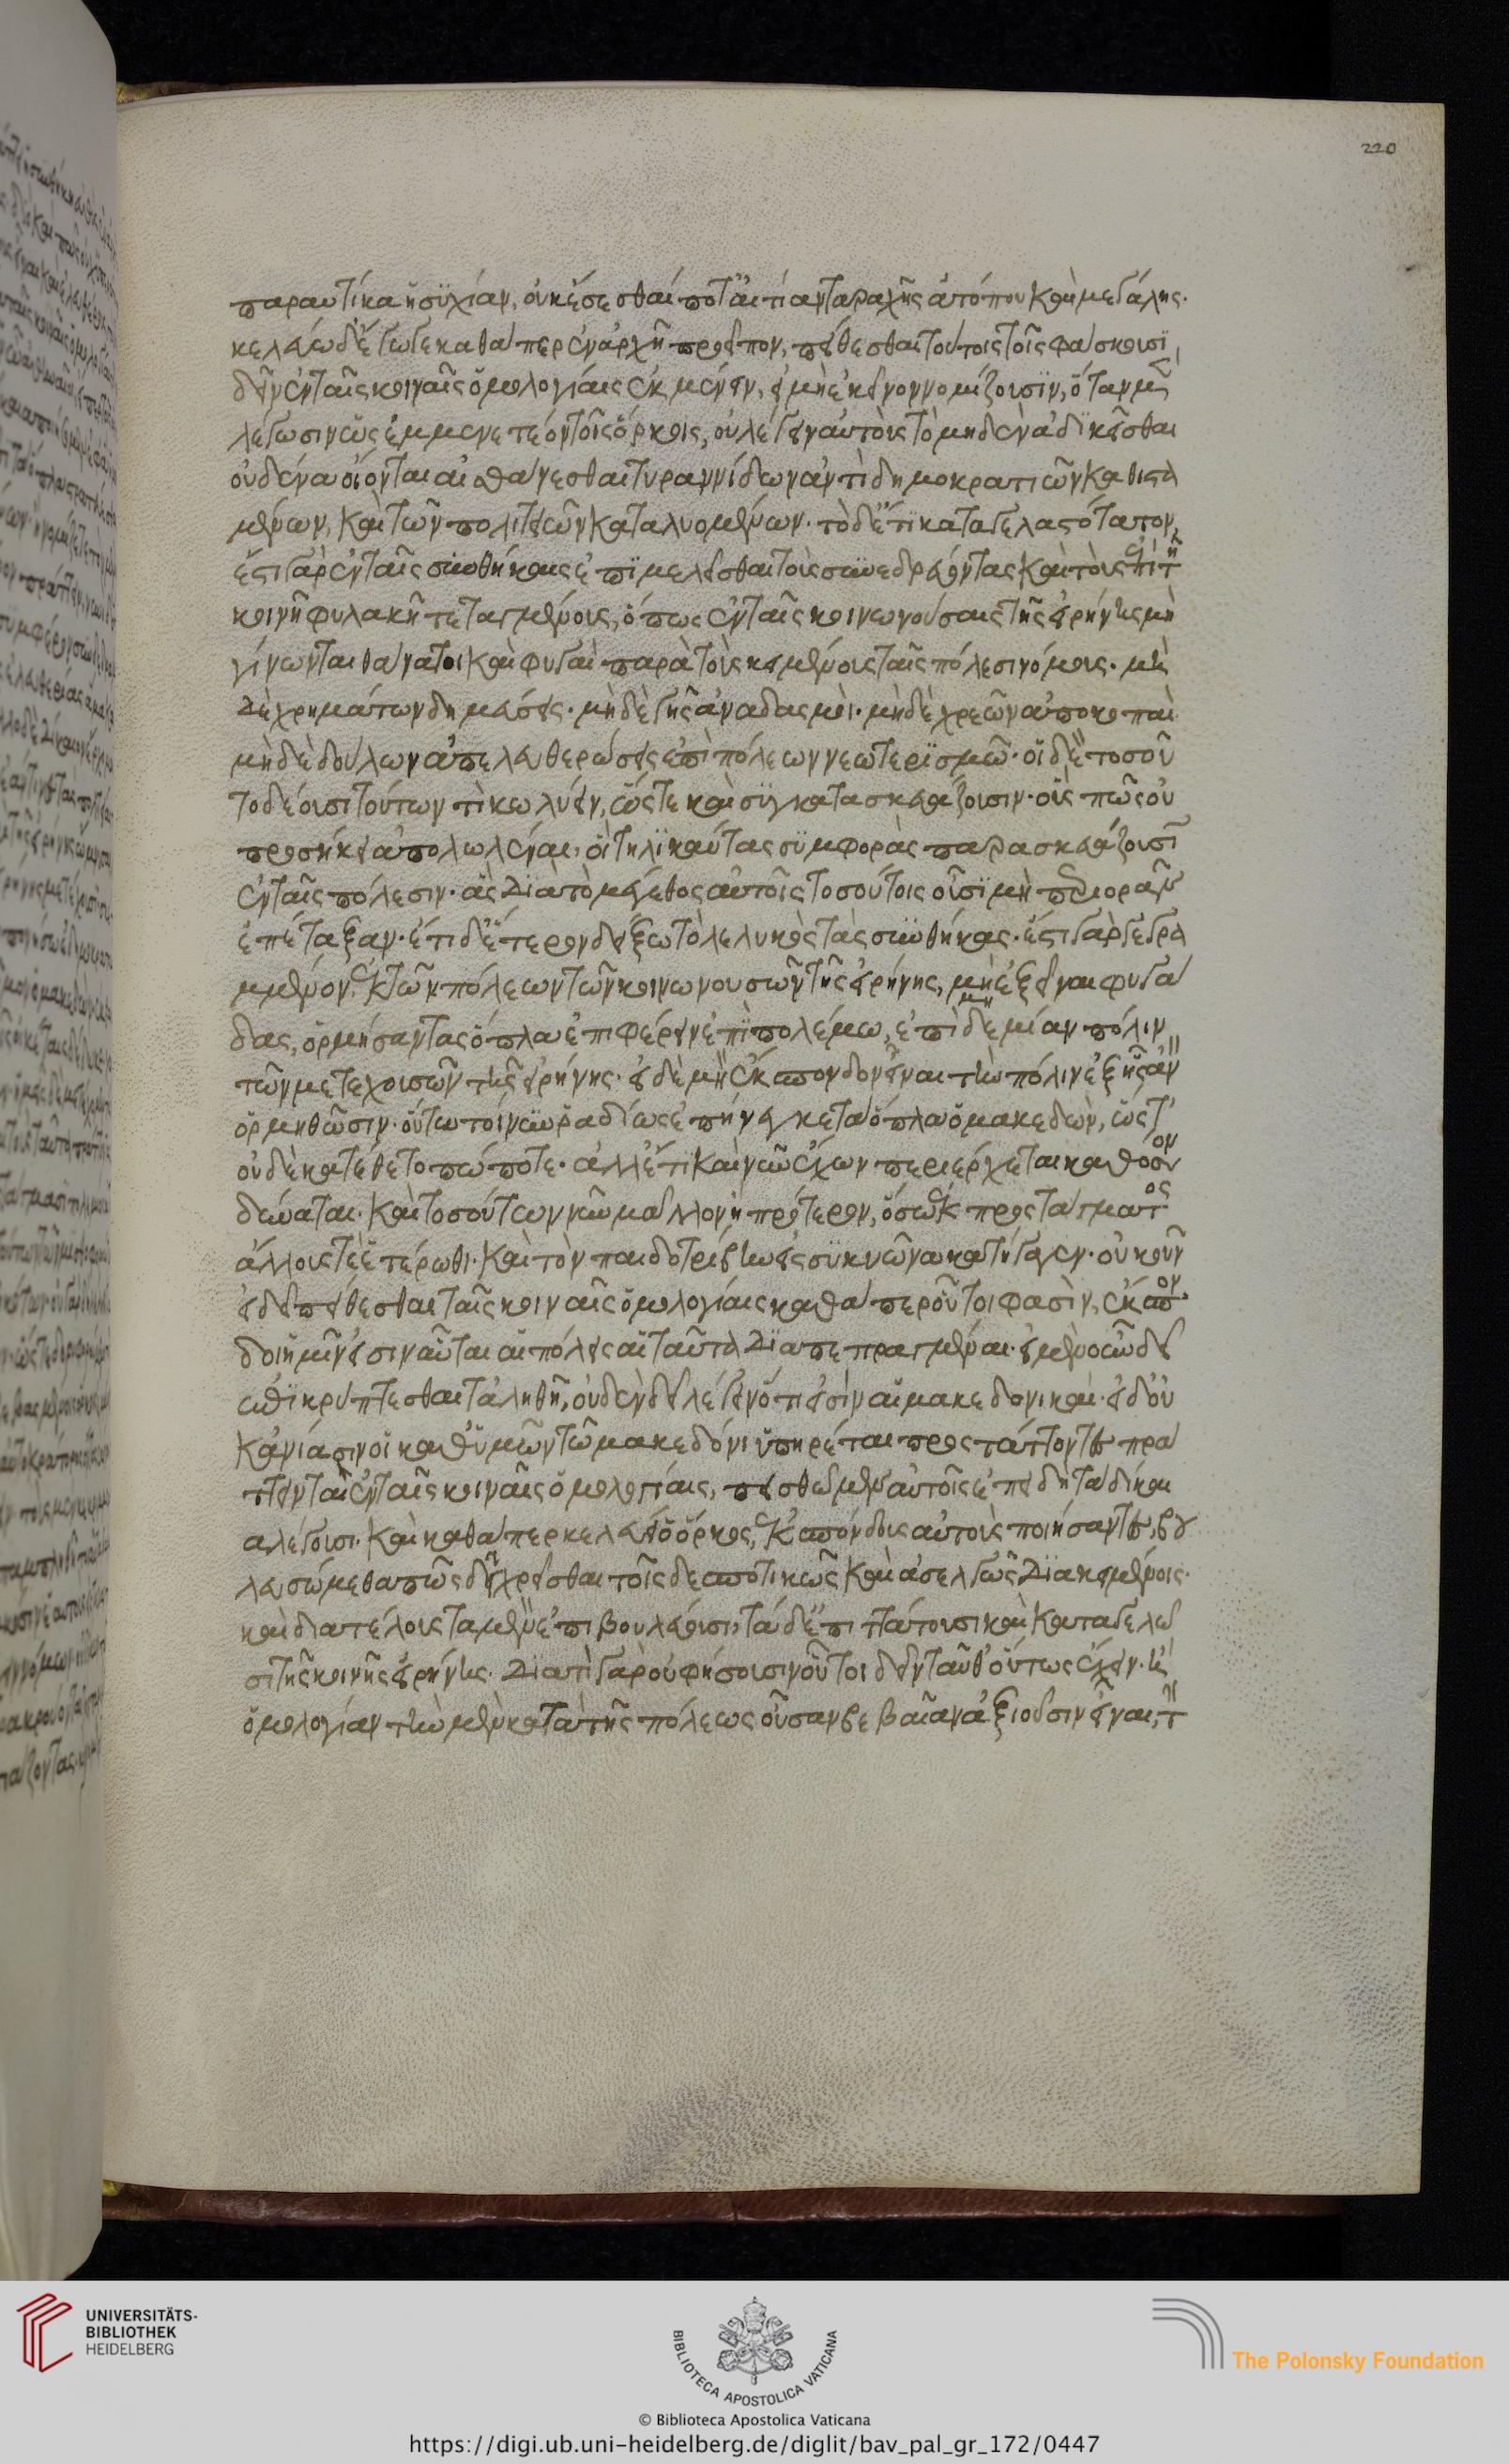 220
παραυτίκα ἡσυχίαν, οὐκ ἔσεσθαί ποτ' αἰτίαν ταραχῆς ἀτόπου καὶ μεγάλης.
κελεύω δ' ἔγωγε καθάπερ ἐν ἀρχῇ προεῖπον, πείθεσθαι τούτοις τοῖς φάσκουσι
δεῖν ἐν ταῖς κοιναῖς ὁμολογίαις ἐμμένειν, εἰ μὴ ἐκεῖνο νομίζουσιν, ὅταν
λέγωσιν ὡς ἐμμενετέον τοῖς ὅρκοις, οὐ λέγειν αὐτοὺς τὸ μηδένα ἀδικεῖσθαι
οὐδένα οἴονται αἰσθάνεσθαι τυραννίδων ἀντὶ δημοκρατιῶν καθιστα
μένων, καὶ τῶν πολιτειῶν καταλυομένων. τὸ δ' ἔτι καταγελαστότατον,
ἔστι γὰρ ἐν ταῖς συνθήκαις ἐπιμελεῖσθαι τοὺς συνεδρεύοντας καὶ τοὺς ἐπὶ τῇ
κοινῇ φυλακῇ τεταγμένους, ὅπως ἐν ταῖς κοινωνούσαις τῆς εἰρήνης μὴ
γίνωνται θάνατοι καὶ φυγαὶ παρὰ τοὺς κειμένους ταῖς πόλεσι νόμους. μη
δὲ χρημάτων δημεύσεις. μηδὲ γῆς ἀναδασμοί. μηδὲ χρεῶν ἀποκοπαί.
μηδὲ δούλων ἀπελευθερώσεις ἐπὶ πόλεων νεωτερισμῶ. οἱ δὲ τοσού
του δέουσι τούτων τι κωλύειν, ὥστε καὶ συγκατασκευάζουσιν. οὓς πῶς οὐ
προσήκει ἀπολωλέναι, οἳ τηλικαύτας συμφορὰς παρασκευάζουσιν
ἐν ταῖς πόλεσιν. ἃς διὰ τὸ μέγεθος αὐτοῖς τοσούτοις οὖσι μὴ περιορᾶν
ἐπέταξαν. ἔτι δ' ἕτερον δείξω τὸ λελυκὸς τὰς συνθήκας. ἔστι γὰρ γεγρα
μμένον, ἐκ τῶν πόλεων τῶν κοινωνουσῶν τῆς εἰρήνης, μὴ ἐξεῖναι φυγά
δας, ὁρμήσαντας ὅπλα ἐπιφέρειν ἐπὶ πολέμω, ἐπὶ μηδεμίαν πόλιν
τῶν μετεχουσῶν τῆς εἰρήνης. εἰ δὲ μὴ ἔκσπονδον εἶναι τὴν πόλιν ἐξ ἧς ἂν
ὁρμηθῶσιν. οὕτω τοίνυν ῥαδίως ἐπήνεγκε τὰ ὅπλα ὁ μακεδών, ὥστ'
οὐδὲ κατέθετο πώποτε. ἀλλ' ἔτι καὶ νῦν ἔχων περιέρχεται καθόσον
δύναται. καὶ τοσούτων νῦν μᾶλλον ἢ πρότερον, ὅσω ἐκ προστάγματος
ἄλλους τε ἑτέρωθι. καὶ τὸν παιδοτρίβην εἰς συκυῶνα κατήγαγεν. οὐκοῦν
εἰ δεῖ πείθεσθαι ταῖς κοιναῖς ὁμολογίαις καθάπερ οὗτοι φασὶν, ἔκσπον
δοι ἡμῖν εἰσιν αὗται αἱ πόλεις αἱ ταῦτα διαπεπραγμέναι. εἰ μὲν οὖν δεῖ
ἀποκρύπτεσθαι τἀληθῆ, οὐδὲν δεῖ λέγειν ὅτι εἰσὶν αἱ μακεδονικαί. εἰ δ' οὐ
κἀνιᾶσιν οἱ καθ' ὑμῶν τῶ μακεδόνι ὑπηρέται προστάττοντες πρά
ττειν τὰ ἐν ταῖς κοιναῖς ὁμολογίαις, πεισθῶμεν αὐτοῖς ἐπειδὴ τὰ δίκαι
α λέγουσι. καὶ καθάπερ κελεύει ὁ ὅρκος, ἐκσπόνδους αὐτοὺς ποιήσαντες, βου
λευσώμεθα πῶς δεῖ χρῆσθαι τοῖς δεσποτικῶς καὶ ἀσελγῶς διακειμένοις.
καὶ διὰ τέλους τὰ μὲν ἐπιβουλεύουσι, τὰ δ' ἐπιτάττουσι καὶ καταγελῶ
σι τῆς κοινῆς εἰρήνης. διὰ τί γὰρ οὐ φήσουσιν οὗτοι δεῖν ταῦθ' οὕτως ἔχειν. ἢ
ὁμολογίαν τὴν μὲν κατὰ τῆς πόλεως οὖσαν βεβαίαν ἀξιοῦσιν εἶναι, τὴν
UNIVERSITÄTS-
BIBLIOTHEK
HEIDELBERG
BIBLIOTECA APOSTOLICA VATICANA
The Polonsky Foundation
© Biblioteca Apostolica Vaticana
https://digi.ub.uni-heidelberg.de/diglit/bav_pal_gr_172/0447